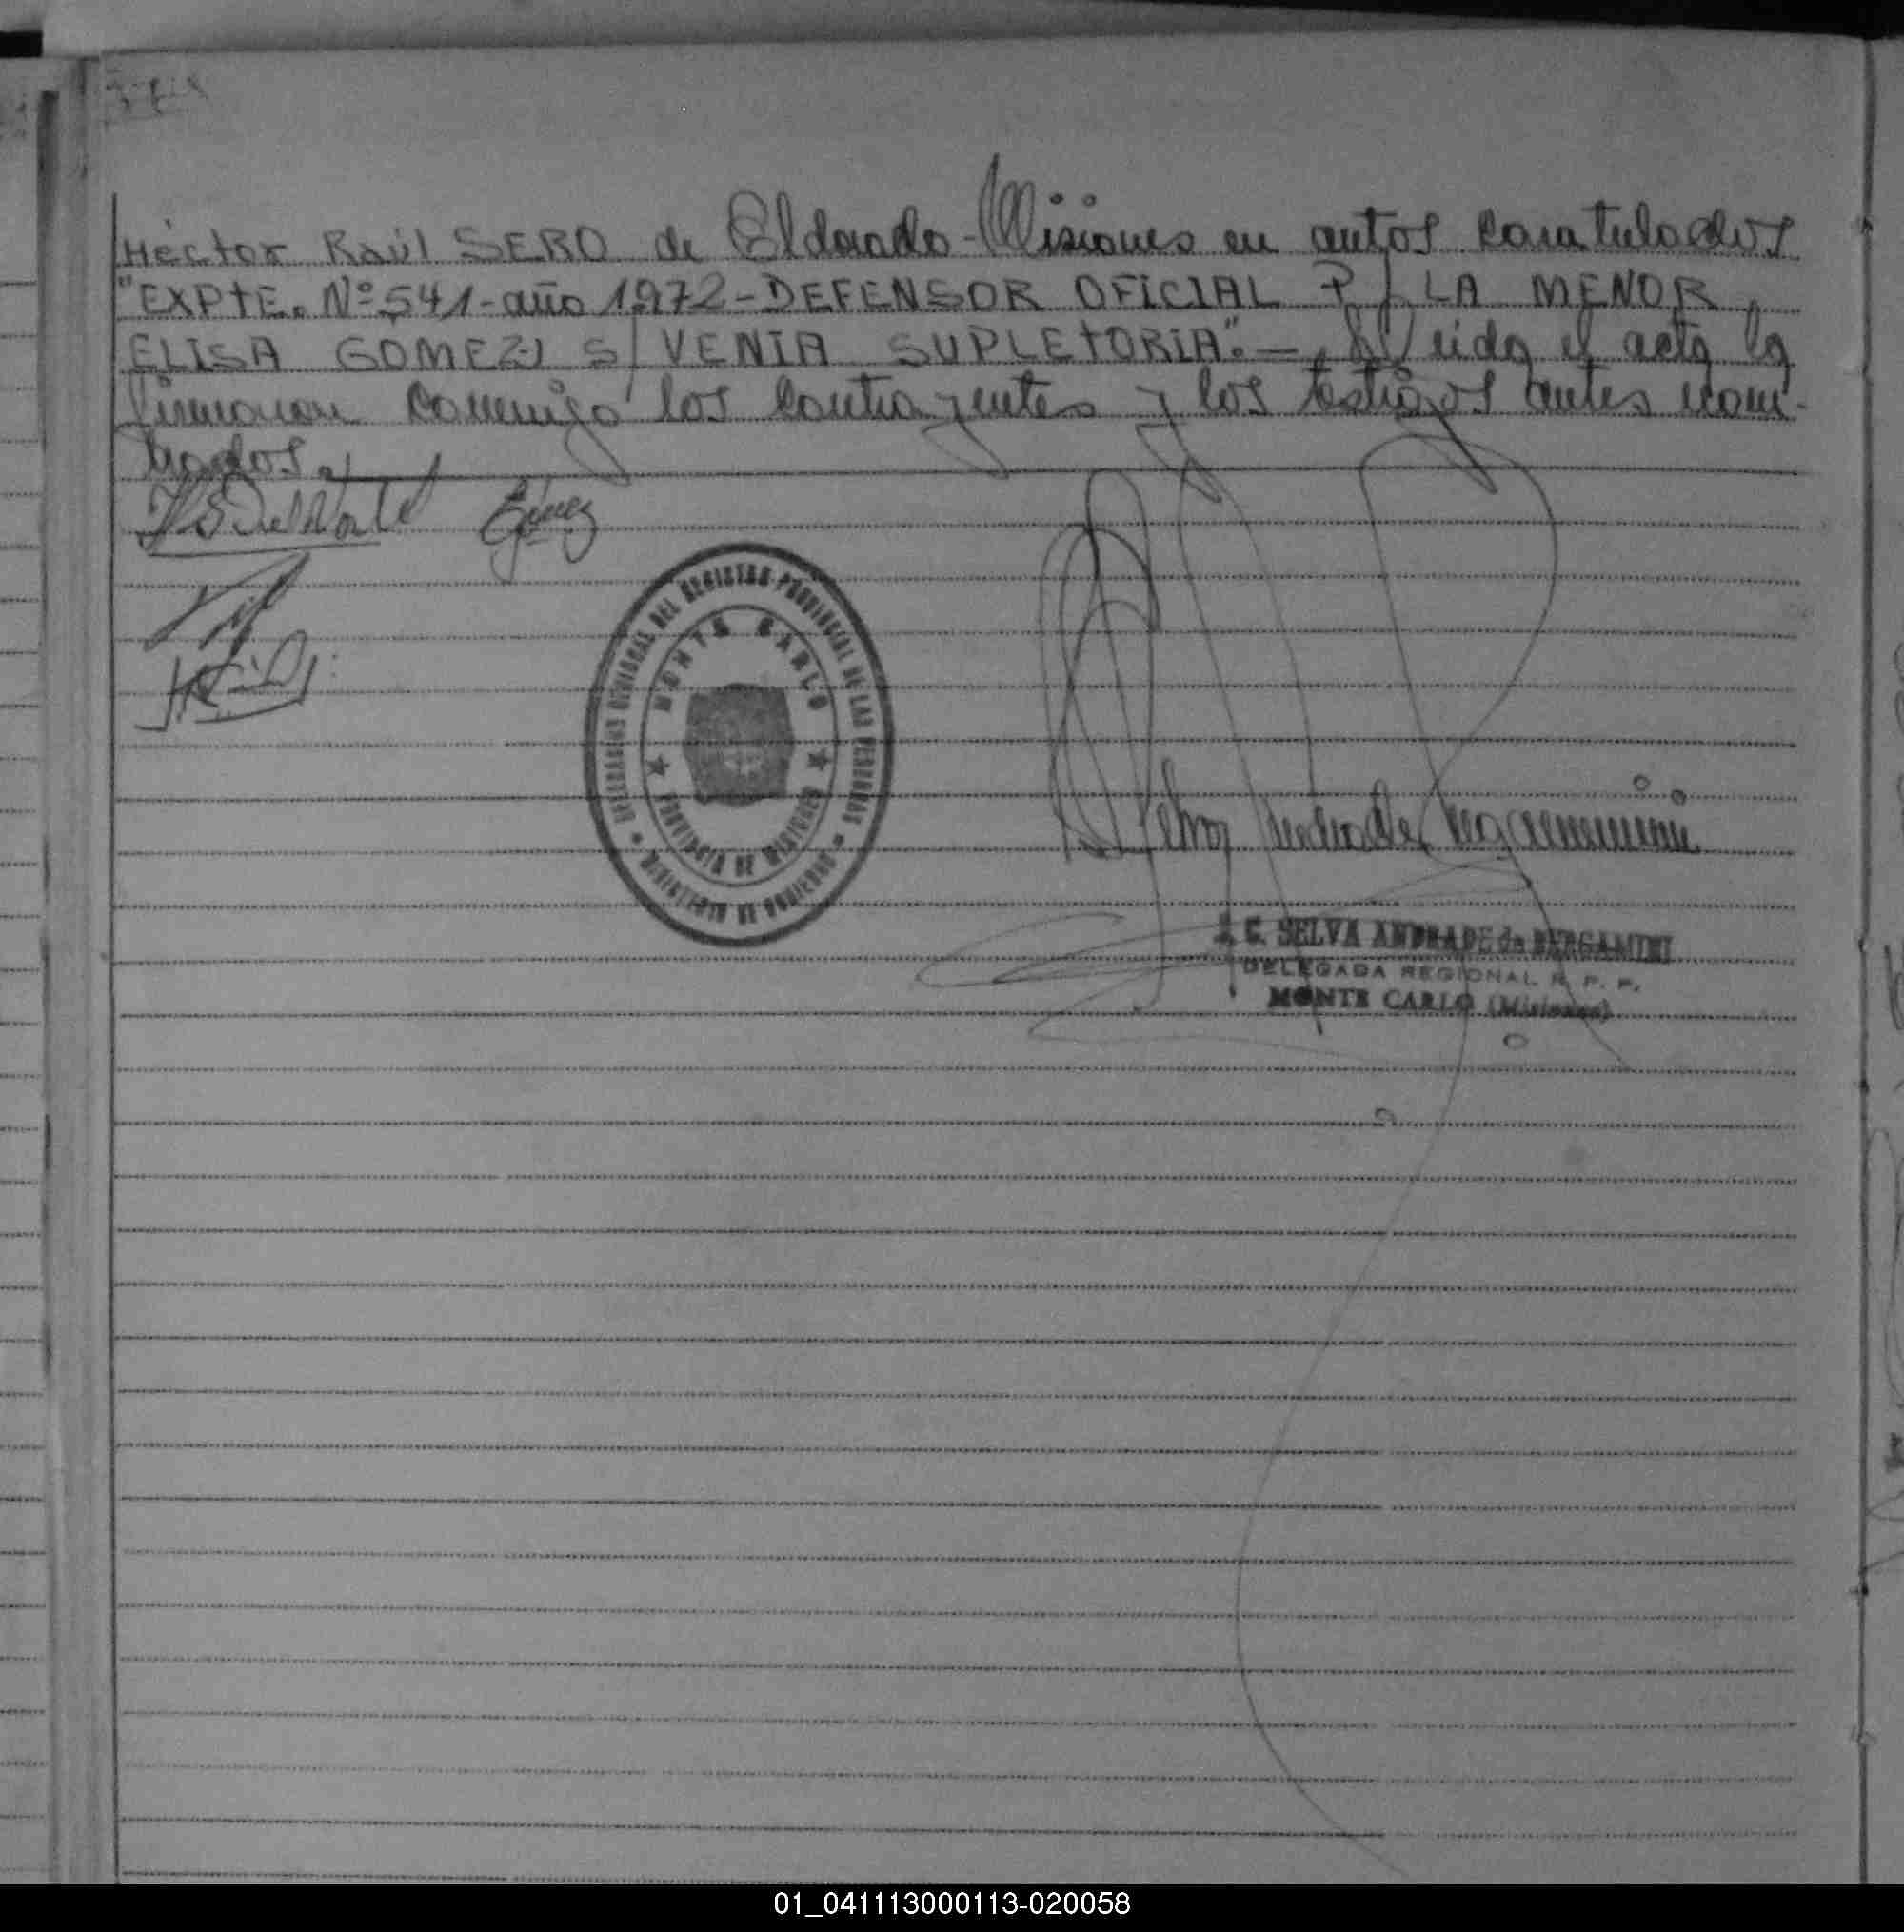 Héctor Raúl SERO de Eldorado-Misiones en autos caratulados
"EXPTE. Nº 541-año 1972-DEFENSOR OFICIAL P/ LA MENOR
ELISA GOMEZ, S/ VENIA SUPLETORIA".— Leída el acta la
firmaron conmigo los contrayentes y los testigos antes nom-
brados.
Gómez
DELEGACIÓN REGIONAL DEL REGISTRO PROVINCIAL DE LAS PERSONAS
MONTE CARLO
PROVINCIA DE MISIONES
MINISTERIO DE GOBIERNO
Selva Andrade Bergamini
SELVA ANDRADE de BERGAMINI
DELEGADA REGIONAL R. P. P.
MONTE CARLO (Misiones)
01_041113000113-020058